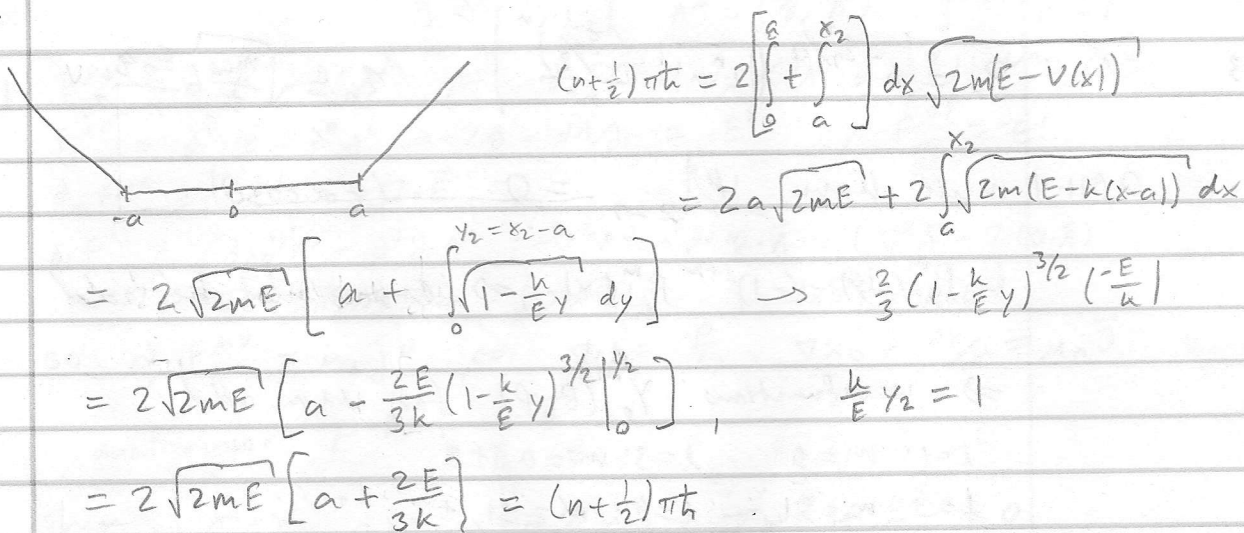 (n+½)πħ = 2[∫₀^a + ∫_a^{x₂}] dx √(2m(E-V(x)))
-a 0 a
= 2a√(2mE) + 2∫_a^{x₂} √(2m(E-k(x-a))) dx
= 2√(2mE) [a + ∫₀^{y₂=x₂-a} √(1-(k/E)y) dy] → 2/3 (1-(k/E)y)^{3/2} (-E/k)
= 2√(2mE) [a - (2E/3k)(1-(k/E)y)^{3/2}|₀^{y₂}], (k/E)y₂ = 1
= 2√(2mE) [a + 2E/3k] = (n+½)πħ.